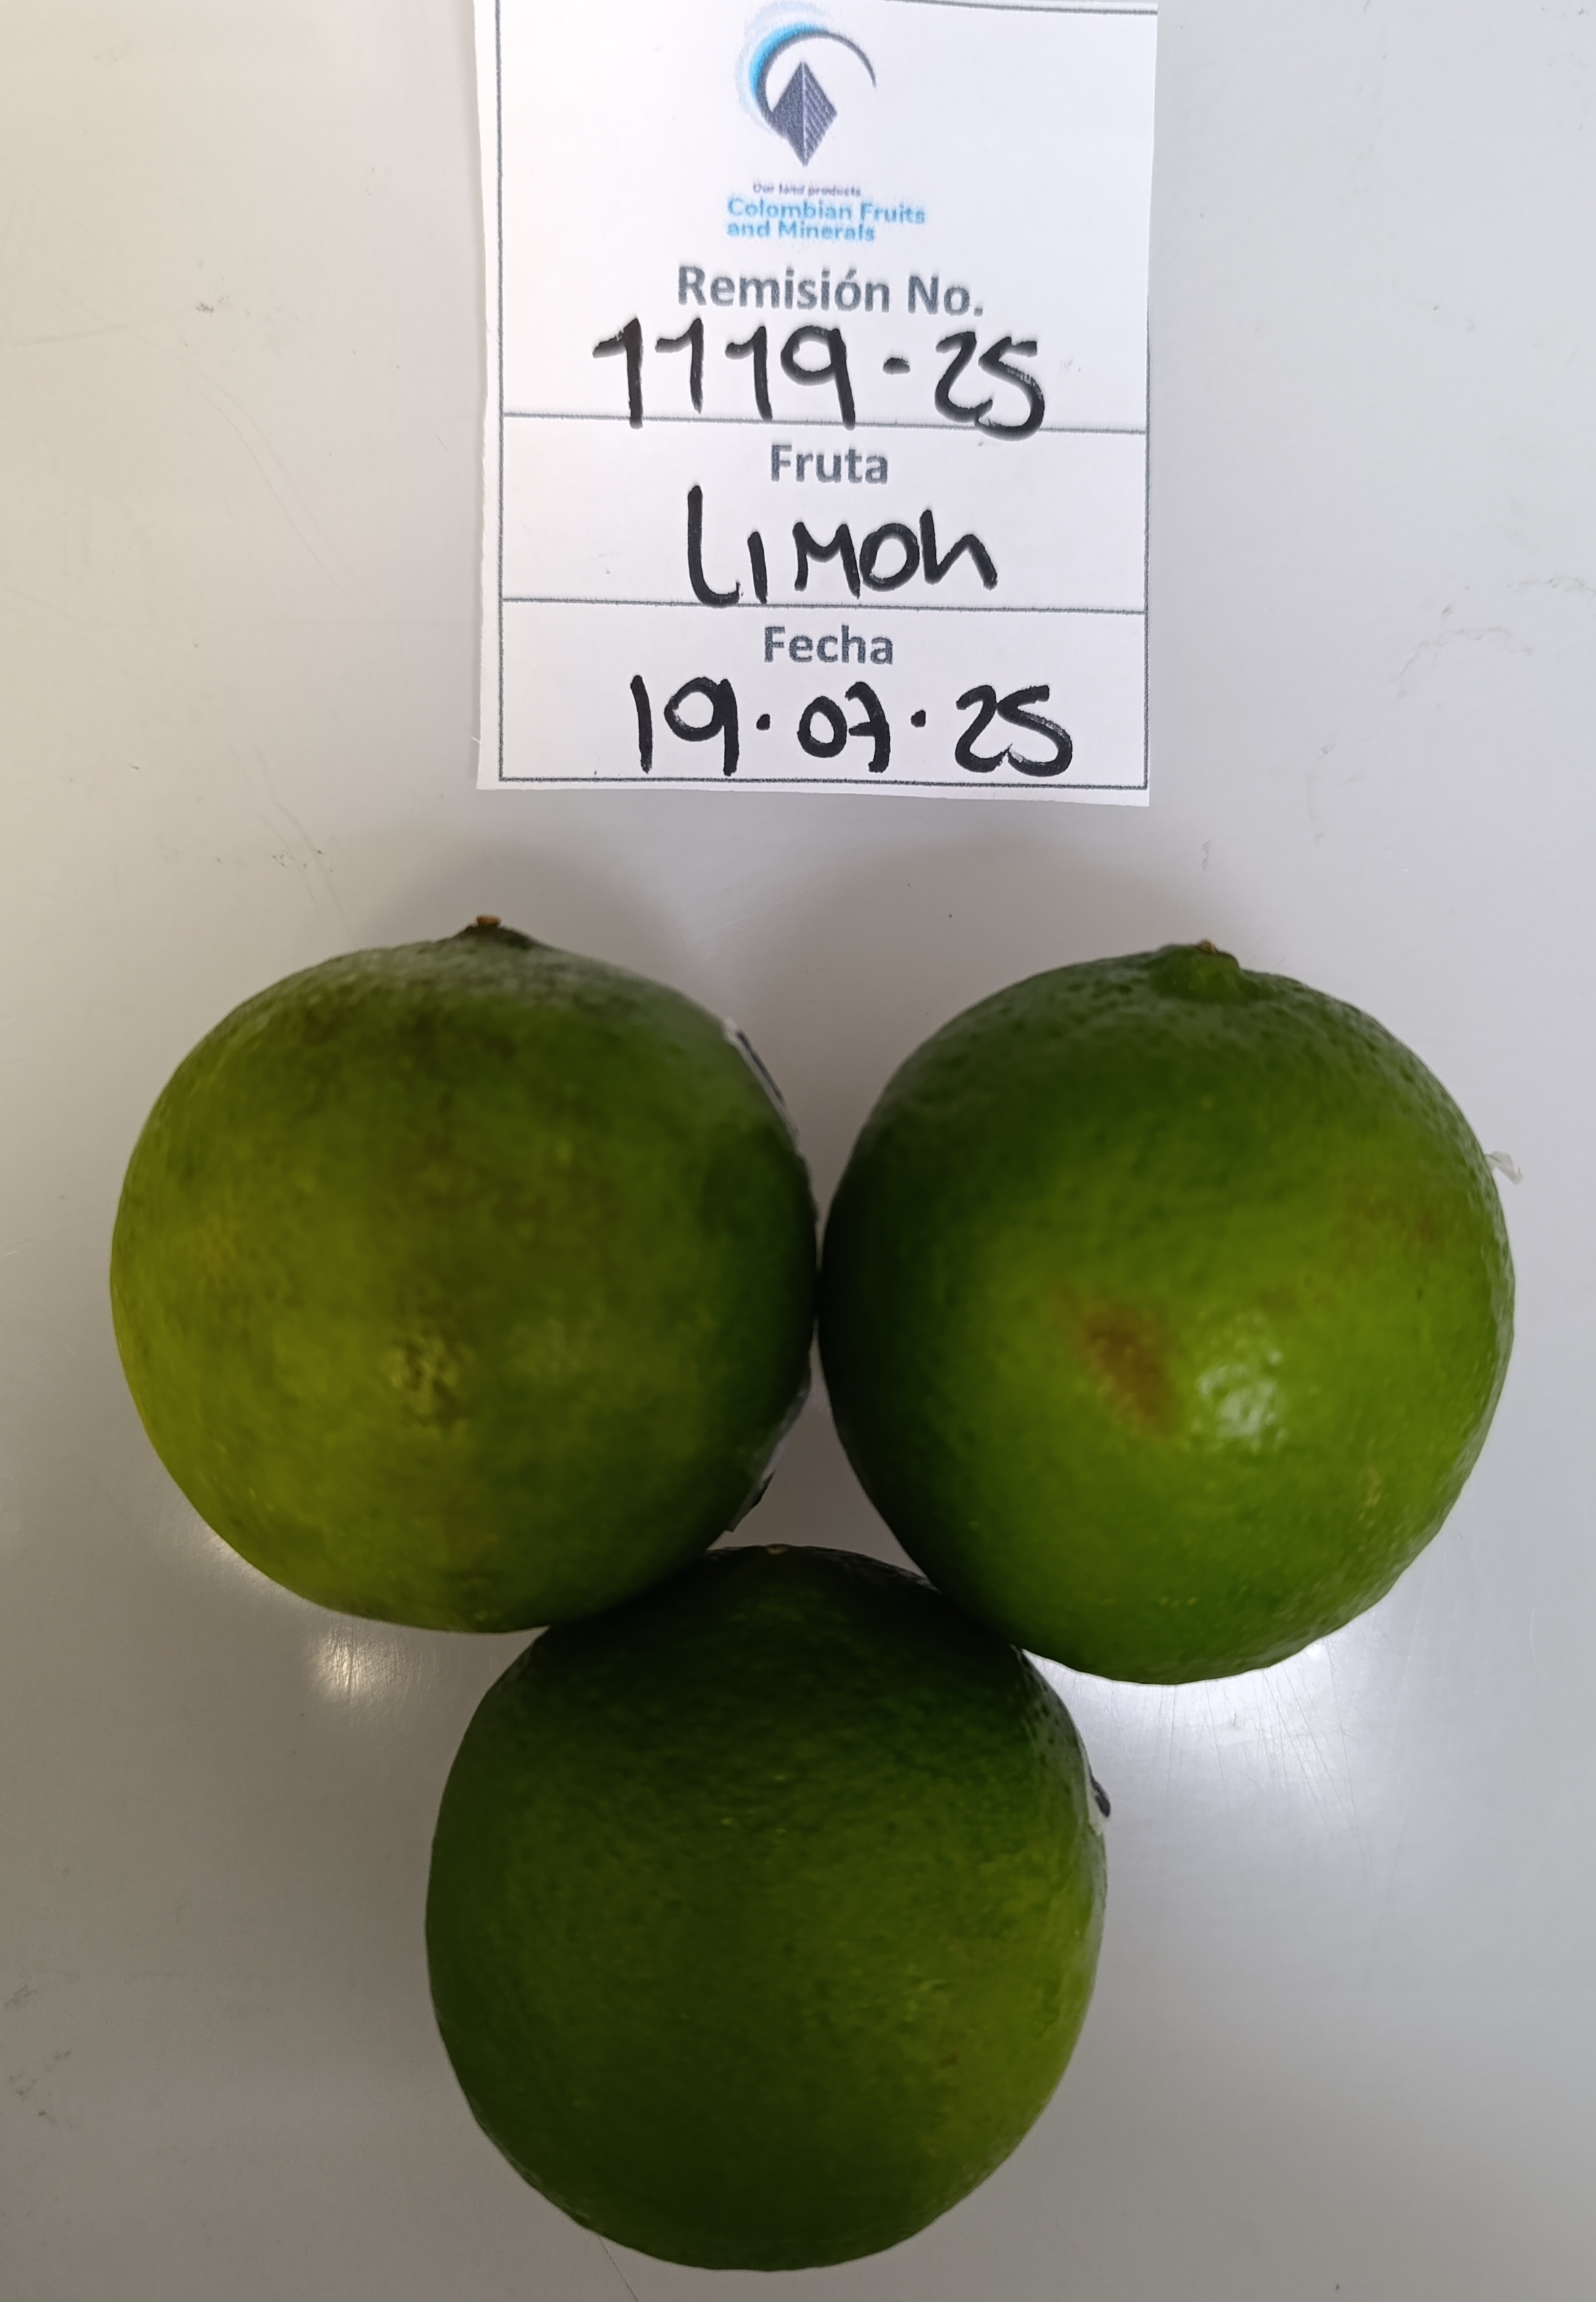 Our land products
Colombian Fruits
and Minerals
Remisión No.
1119-25
Fruta
LIMON
Fecha
19.07.25